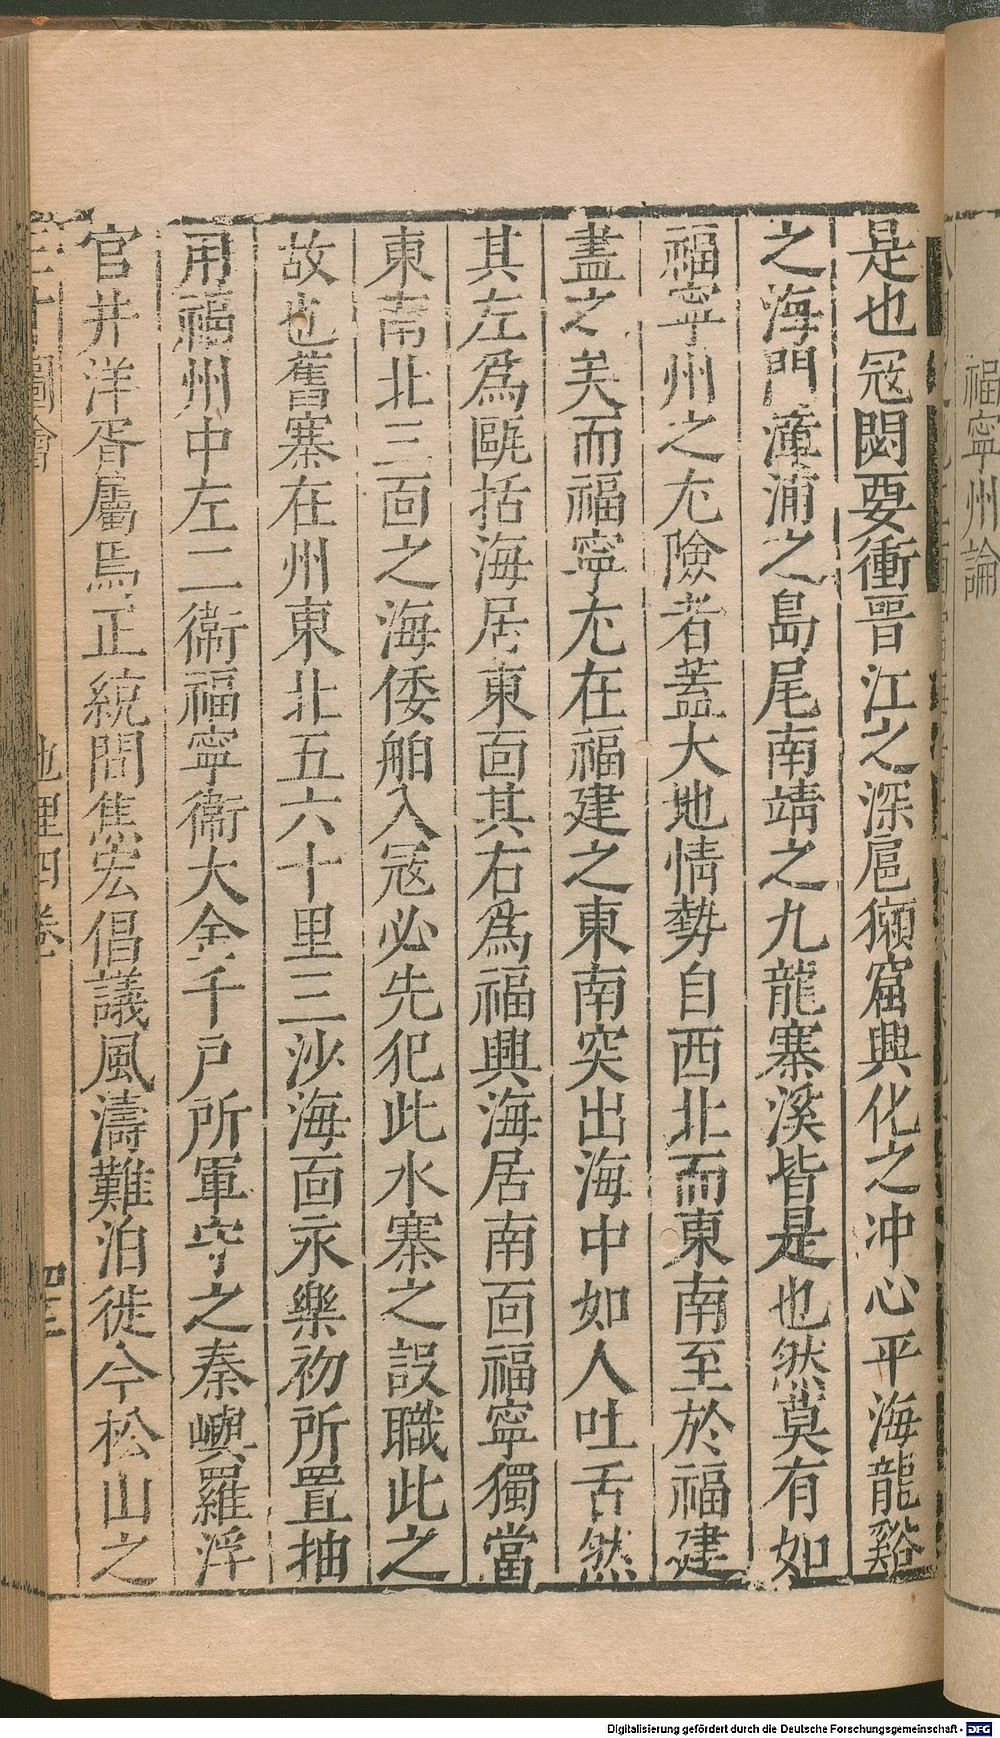 福寧州論
是也冦閩要衝晉江之深扈獺窟興化之冲心平海龍谿
之海門漳浦之島尾南靖之九龍寨溪皆是也然莫有如
福寧州之尤險者蓋大地情勢自西北而東南至於福建
盡之美而福寧尤在福建之東南突出海中如人吐舌然
其左爲甌括海居東面其右爲福興海居南面福寧獨當
東南北三面之海倭舶入冦必先犯此水寨之設職此之
故也舊寨在州東北五六十里三沙海面永樂初所置抽
用福州中左二衞福寧衞大金千戸所軍守之秦嶼羅浮
官井洋胥屬焉正統間焦宏倡議風濤難泊徙今松山之
三才圖會
地理四卷
四三
Digitalisierung gefördert durch die Deutsche Forschungsgemeinschaft - DFG